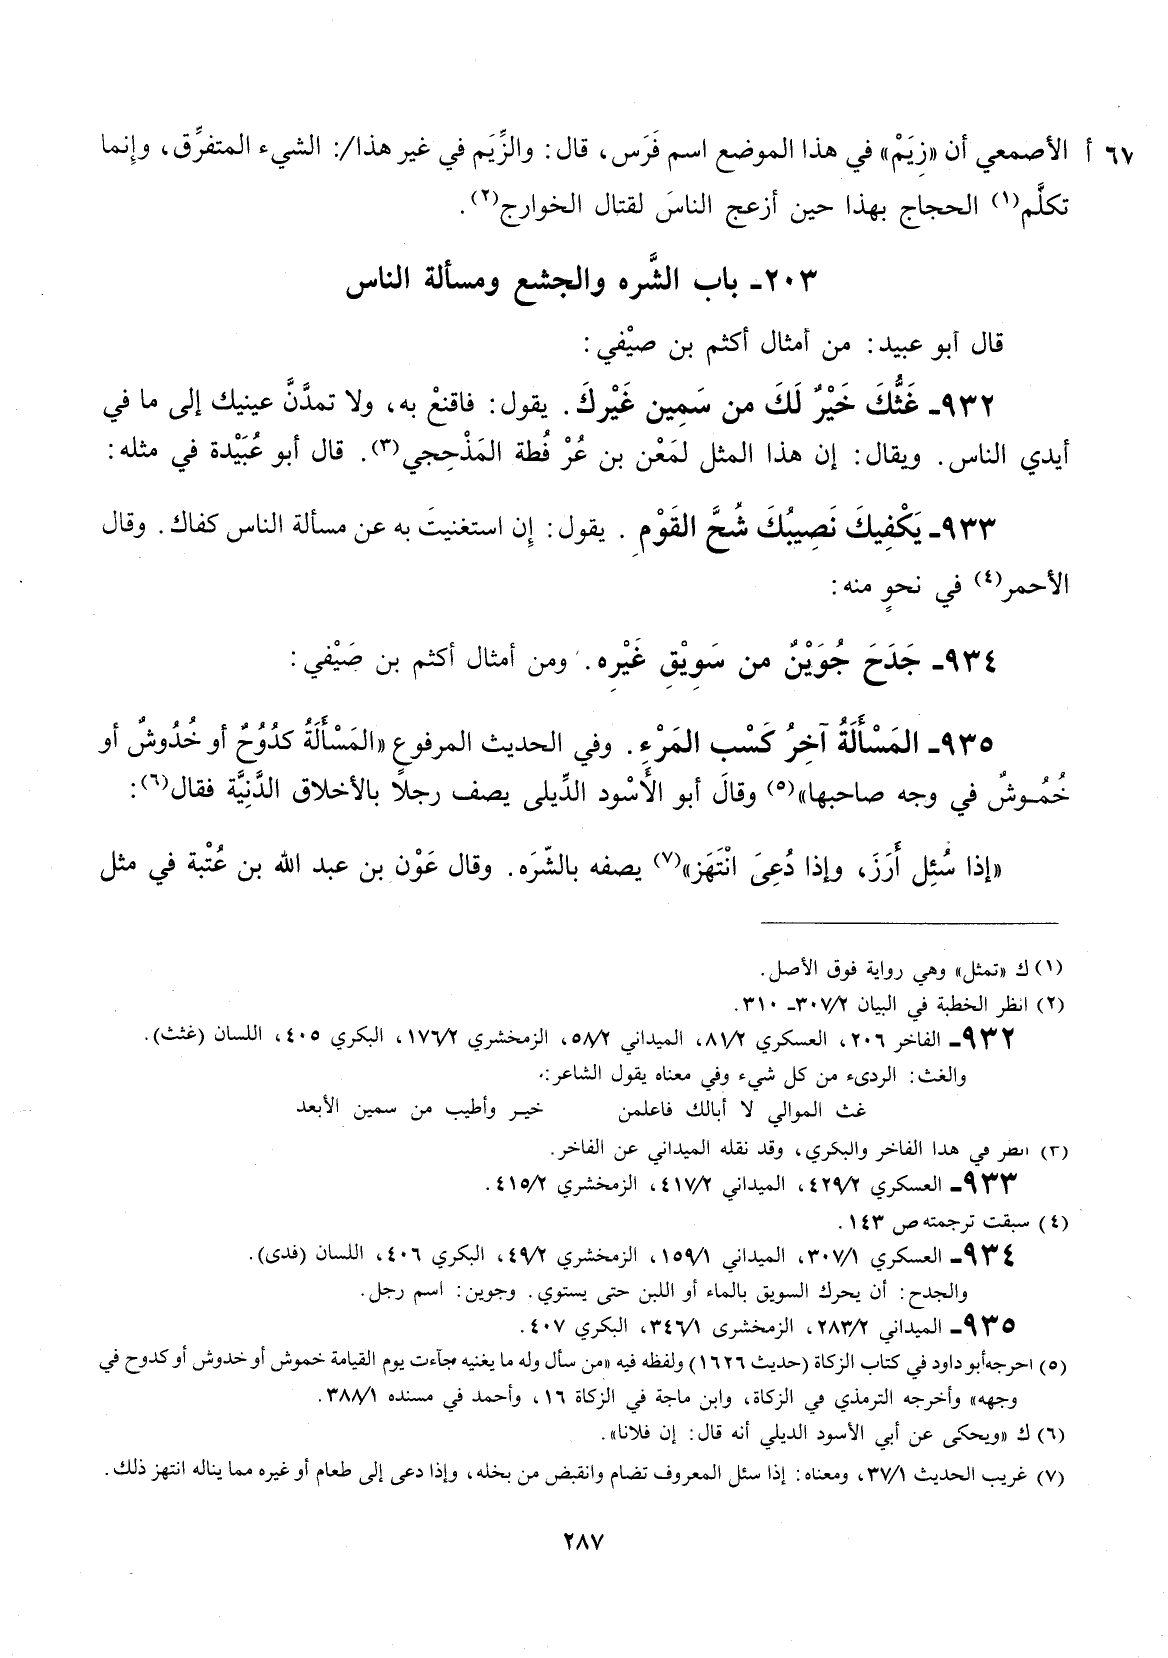 ٦٧ أ الأصمعي أن «زِيَمْ» في هذا الموضع اسم فَرَس، قال: والزِّيَم في غير هذا/: الشيء المتفرِّق، وإنما
تكلَّم(١) الحجاج بهذا حين أزعج الناسَ لقتال الخوارج(٢).
٢٠٣ـ باب الشَّره والجشع ومسألة الناس
قال أبو عبيد: من أمثال أكثم بن صيْفي:
٩٣٢ـ غَثُّكَ خَيْرٌ لَكَ من سَمِين غَيْرِكَ. يقول: فاقنعْ به، ولا تمدَّنَّ عينيك إلى ما في
أيدي الناس. ويقال: إن هذا المثل لمَعْن بن عُرْ فُطة المَذْحِجي(٣). قال أبو عُبَيْدة في مثله:
٩٣٣ـ يَكْفِيكَ نَصِيبُكَ شُحَّ القَوْمِ. يقول: إن استغنيتَ به عن مسألة الناس كفاك. وقال
الأحمر(٤) في نحوٍ منه:
٩٣٤ـ جَدَحَ جُوَيْنٌ من سَوِيْقِ غَيْرِه. ومن أمثال أكثم بن صَيْفي:
٩٣٥ـ المَسْأَلَةُ آخِرُ كَسْبِ المَرْءِ. وفي الحديث المرفوع «المَسْأَلَةُ كدُوُحٌ أو خُدُوشٌ أو
خُمُوشٌ في وجه صاحبها»(٥) وقالَ أبو الأَسْود الدِّيلى يصف رجلاً بالأخلاق الدَّنِيَّة فقال(٦):
«إذا سُئِل أَرَزَ، وإذا دُعِىَ انْتَهَز»(٧) يصفه بالشّرَه. وقال عَوْن بن عبد الله بن عُتْبة في مثل
(١) ك «تمثل» وهي رواية فوق الأصل.
(٢) انظر الخطبة في البيان ٣٠٧/٢ـ ٣١٠.
٩٣٢ـ الفاخر ٢٠٦، العسكري ٨١/٢، الميداني ٥٨/٢، الزمخشري ١٧٦/٢، البكري ٤٠٥، اللسان (غثث).
والغث: الردىء من كل شيء وفي معناه يقول الشاعر:
غث الموالي لا أبالك فاعلمن خيـر وأطيب من سمين الأبعد
(٣) انظر في هذا الفاخر والبكري، وقد نقله الميداني عن الفاخر.
٩٣٣ـ العسكري ٤٢٩/٢، الميداني ٤١٧/٢، الزمخشري ٤١٥/٢.
(٤) سبقت ترجمته ص ١٤٣.
٩٣٤ـ العسكري ٣٠٧/١، الميداني ١٥٩/١، الزمخشري ٤٩/٢، البكري ٤٠٦، اللسان (فدى).
والجدح: أن يحرك السويق بالماء أو اللبن حتى يستوي. وجوين: اسم رجل.
٩٣٥ـ الميداني ٢٨٣/٢، الزمخشرى ٣٤٦/١، البكري ٤٠٧.
(٥) اخرجه أبو داود في كتاب الزكاة (حديث ١٦٢٦) ولفظه فيه «من سأل وله ما يغنيه جآءت يوم القيامة خموش أو خدوش أو كدوح في
وجهه» وأخرجه الترمذي في الزكاة، وابن ماجة في الزكاة ١٦، وأحمد في مسنده ٣٨٨/١.
(٦) ك «ويحكى عن أبي الأسود الديلي أنه قال: إن فلانا».
(٧) غريب الحديث ٣٧/١، ومعناه: إذا سئل المعروف تضام وانقبض من بخله، وإذا دعى إلى طعام أو غيره مما يناله انتهز ذلك.
٢٨٧